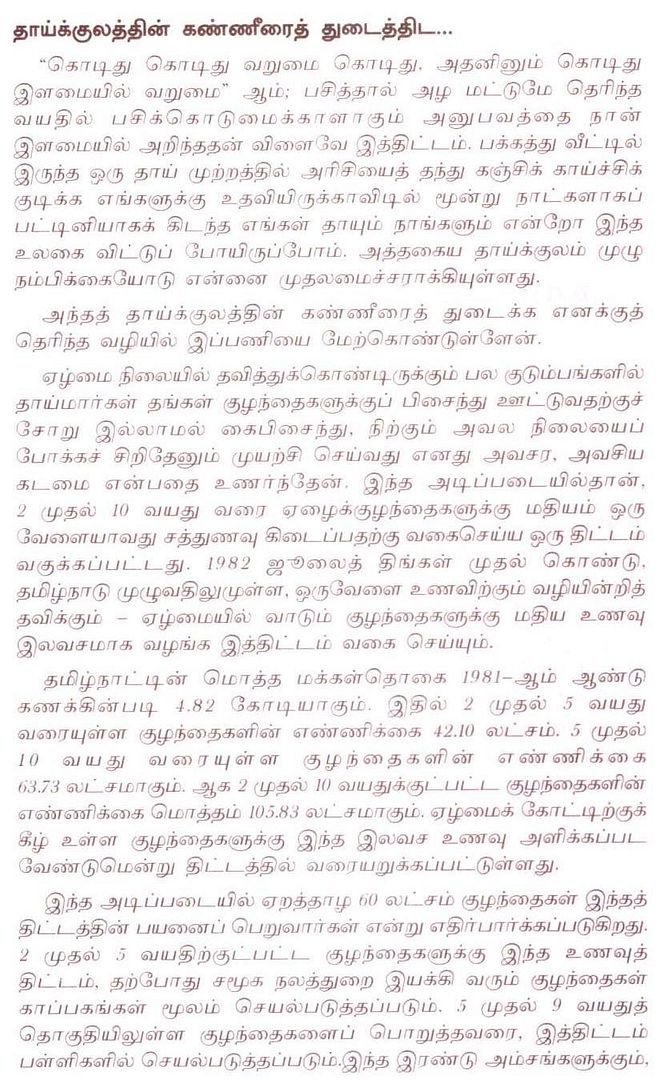 தாய்க்குலத்தின் கண்ணீரைத் துடைத்திட...
“கொடிது கொடிது வறுமை கொடிது, அதனினும் கொடிது
இளமையில் வறுமை” ஆம்; பசித்தால் அழ மட்டுமே தெரிந்த
வயதில் பசிக்கொடுமைக்காளாகும் அனுபவத்தை நான்
இளமையில் அறிந்ததன் விளைவே இத்திட்டம். பக்கத்து வீட்டில்
இருந்த ஒரு தாய் முற்றத்தில் அரிசியைத் தந்து கஞ்சிக் காய்ச்சிக்
குடிக்க எங்களுக்கு உதவியிருக்காவிடில் மூன்று நாட்களாகப்
பட்டினியாகக் கிடந்த எங்கள் தாயும் நாங்களும் என்றோ இந்த
உலகை விட்டுப் போயிருப்போம். அத்தகைய தாய்க்குலம் முழு
நம்பிக்கையோடு என்னை முதலமைச்சராக்கியுள்ளது.
அந்தத் தாய்க்குலத்தின் கண்ணீரைத் துடைக்க எனக்குத்
தெரிந்த வழியில் இப்பணியை மேற்கொண்டுள்ளேன்.
ஏழ்மை நிலையில் தவித்துக்கொண்டிருக்கும் பல குடும்பங்களில்
தாய்மார்கள் தங்கள் குழந்தைகளுக்குப் பிசைந்து ஊட்டுவதற்குச்
சோறு இல்லாமல் கைபிசைந்து, நிற்கும் அவல நிலையைப்
போக்கச் சிறிதேனும் முயற்சி செய்வது எனது அவசர, அவசிய
கடமை என்பதை உணர்ந்தேன். இந்த அடிப்படையில்தான்,
2 முதல் 10 வயது வரை ஏழைக்குழந்தைகளுக்கு மதியம் ஒரு
வேளையாவது சத்துணவு கிடைப்பதற்கு வகைசெய்ய ஒரு திட்டம்
வகுக்கப்பட்டது. 1982 ஜூலைத் திங்கள் முதல் கொண்டு,
தமிழ்நாடு முழுவதிலுமுள்ள, ஒருவேளை உணவிற்கும் வழியின்றித்
தவிக்கும் – ஏழ்மையில் வாடும் குழந்தைகளுக்கு மதிய உணவு
இலவசமாக வழங்க இத்திட்டம் வகை செய்யும்.
தமிழ்நாட்டின் மொத்த மக்கள்தொகை 1981–ஆம் ஆண்டு
கணக்கின்படி 4.82 கோடியாகும். இதில் 2 முதல் 5 வயது
வரையுள்ள குழந்தைகளின் எண்ணிக்கை 42.10 லட்சம். 5 முதல்
10 வயது வரையுள்ள குழந்தைகளின் எண்ணிக்கை
63.73 லட்சமாகும். ஆக 2 முதல் 10 வயதுக்குட்பட்ட குழந்தைகளின்
எண்ணிக்கை மொத்தம் 105.83 லட்சமாகும். ஏழ்மைக் கோட்டிற்குக்
கீழ் உள்ள குழந்தைகளுக்கு இந்த இலவச உணவு அளிக்கப்பட
வேண்டுமென்று திட்டத்தில் வரையறுக்கப்பட்டுள்ளது.
இந்த அடிப்படையில் ஏறத்தாழ 60 லட்சம் குழந்தைகள் இந்தத்
திட்டத்தின் பயனைப் பெறுவார்கள் என்று எதிர்பார்க்கப்படுகிறது.
2 முதல் 5 வயதிற்குட்பட்ட குழந்தைகளுக்கு இந்த உணவுத்
திட்டம், தற்போது சமூக நலத்துறை இயக்கி வரும் குழந்தைகள்
காப்பகங்கள் மூலம் செயல்படுத்தப்படும். 5 முதல் 9 வயதுத்
தொகுதியிலுள்ள குழந்தைகளைப் பொறுத்தவரை, இத்திட்டம்
பள்ளிகளில் செயல்படுத்தப்படும்.இந்த இரண்டு அம்சங்களுக்கும்,